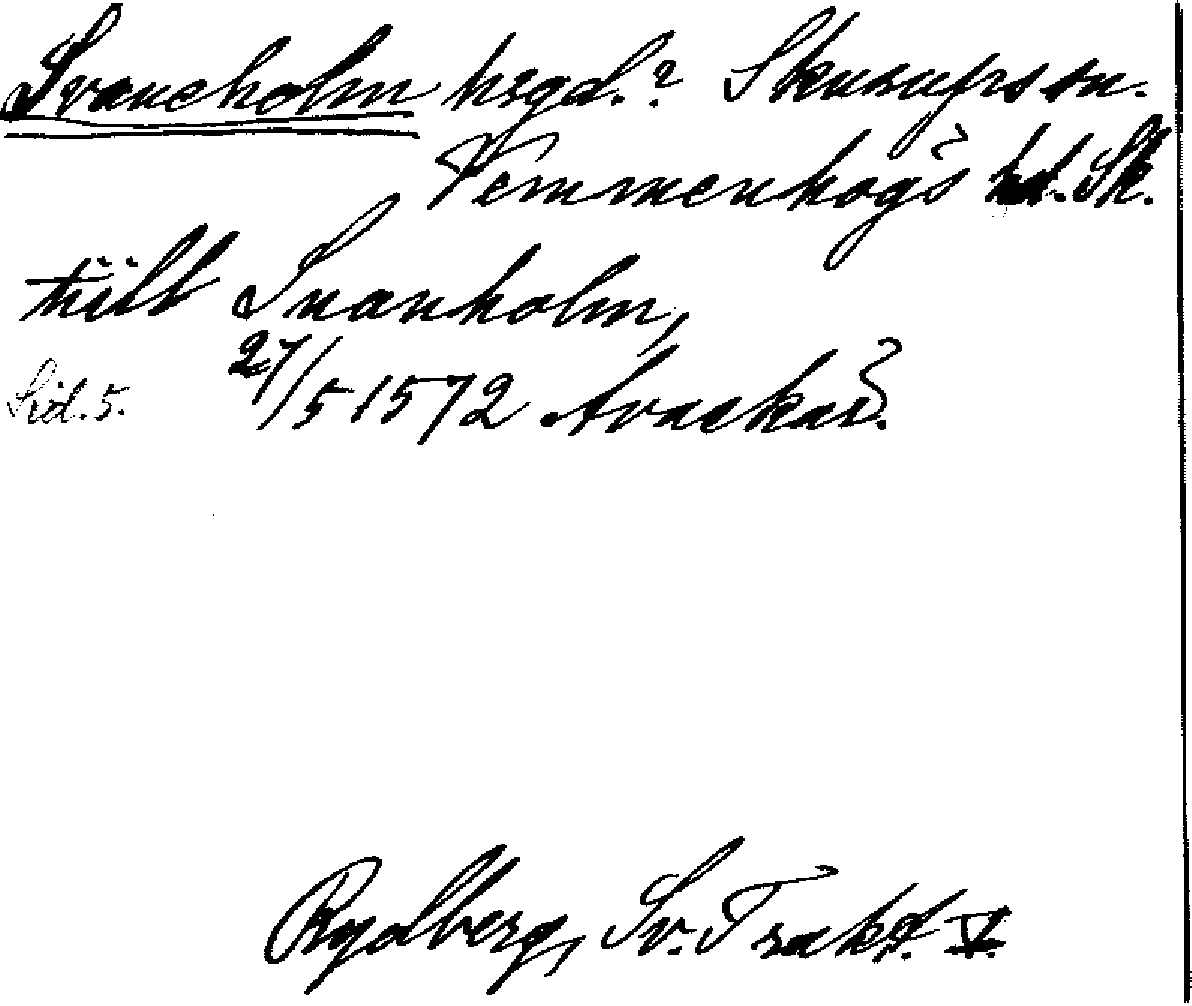 Svaneholm hrgd.? Skurups sn.
Vemmenhögs hd. Sk.
till Suanholm,
Sid. 5. 27/5 1572 Avaskär.
Rydberg, Sv. Trakt. V.